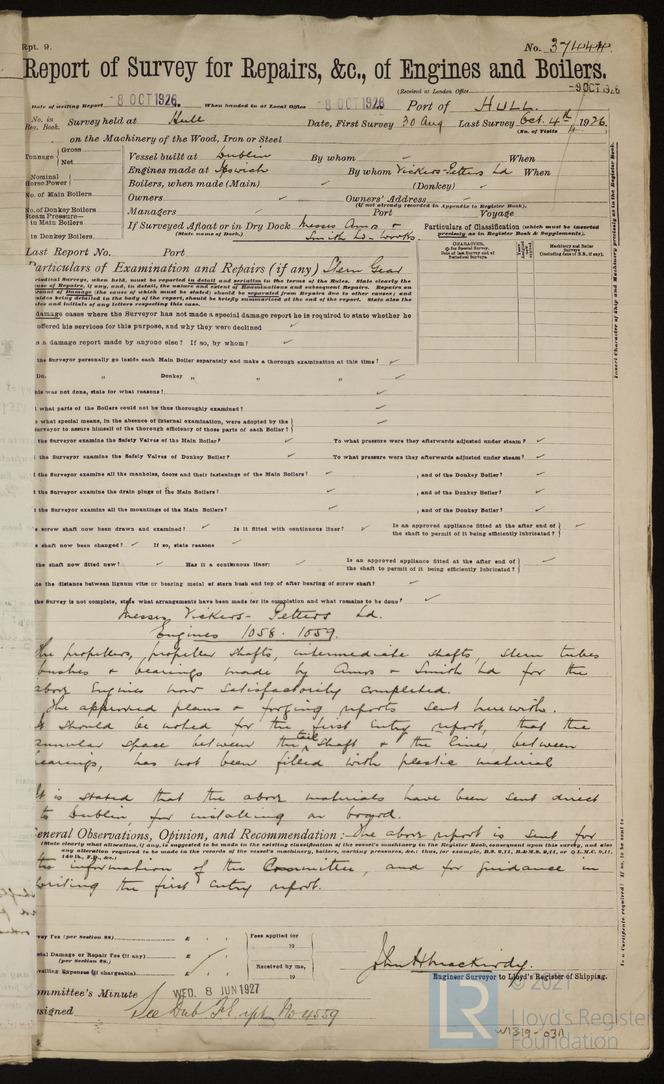 Rpt. 9.
No. 37444.
Report of Survey for Repairs, &c., of Engines and Boilers.
(Received at London Office -9 OCT 1926
Date of writing Report -8 OCT 1926. When handed in at Local Office -8 OCT 1926 Port of HULL.
No. in Reg. Book. Survey held at Hull Date, First Survey 30 Aug Last Survey Oct. 4th 1926.
(No. of Visits 4.)
on the Machinery of the Wood, Iron or Steel
Tonnage Gross Net
Vessel built at Dublin By whom When
Engines made at Ipswich By whom Vickers-Petters Ld When
Nominal Horse Power
Boilers, when made (Main) (Donkey)
No. of Main Boilers
Owners Owners' Address
(If not already recorded in Appendix to Register Book).
No. of Donkey Boilers
Managers Port Voyage
Steam Pressure— in Main Boilers
If Surveyed Afloat or in Dry Dock Messrs Amos & Smith Ld-Works.
(State name of Dock.)
in Donkey Boilers
Particulars of Classification (which must be inserted precisely as in Register Book & Supplements).
Last Report No. Port
Particulars of Examination and Repairs (if any) Stern Gear
damage cases where the Surveyor has not made a special damage report he is required to state whether he
offered his services for this purpose, and why they were declined
s a damage report made by anyone else? If so, by whom?
the Surveyor personally go inside each Main Boiler separately and make a thorough examination at this time?
Do. „ Donkey „ „ „
his was not done, state for what reasons?
what parts of the Boilers could not be thus thoroughly examined?
what special means, in the absence of internal examination, were adopted by the
urveyor to assure himself of the thorough efficiency of those parts of each Boiler?
the Surveyor examine the Safety Valves of the Main Boiler? To what pressure were they afterwards adjusted under steam?
the Surveyor examine the Safety Valves of Donkey Boiler? To what pressure were they afterwards adjusted under steam?
the Surveyor examine all the manholes, doors and their fastenings of the Main Boilers? , and of the Donkey Boiler?
the Surveyor examine the drain plugs of the Main Boilers? , and of the Donkey Boiler?
the Surveyor examine all the mountings of the Main Boilers? , and of the Donkey Boiler?
screw shaft now been drawn and examined? Is it fitted with continuous liner? Is an approved appliance fitted at the after end of the shaft to permit of it being efficiently lubricated?
shaft now been changed? If so, state reasons
the shaft now fitted new? Has it a continuous liner? Is an approved appliance fitted at the after end of the shaft to permit of it being efficiently lubricated?
the distance between lignum vitæ or bearing metal of stern bush and top of after bearing of screw shaft?
the Survey is not complete, state what arrangements have been made for its completion and what remains to be done?
Messrs Vickers-Petters Ld.
Engines 1058. 1059.
The propellers, propeller shafts, intermediate shafts, stern tubes
bushes & bearings made by Amos & Smith Ld for the
above Engines now satisfactorily completed.
The approved plans & forging reports sent herewith.
It should be noted for the first entry report, that the
annular space between the tail shaft & the liner, between
bearings, has not been filled with plastic material
It is stated that the above materials have been sent direct
to Dublin, for installing on board.
General Observations, Opinion, and Recommendation:— The above report is sent for
(State clearly what alteration, if any, is suggested to be made in the existing classification of the vessel's machinery in the Register Book, consequent upon this survey, and also
any alteration required to be made in the records of the vessel's machinery, boilers, working pressures, &c.: thus, for example, B.S. 9,11, B.&M.S. 9,11, or L.M.C. 9,11,
140 lb., F.D., &c.)
the information of the Committee, and for guidance in
writing the first entry report.
Survey Fee (per Section 28) £ : : Fees applied for 19
Special Damage or Repair Fee (if any) (per Section 28.) £ : :
Travelling Expenses (if chargeable) £ : : Received by me, 19
John H Mackirdy.
Engineer Surveyor to Lloyd's Register of Shipping.
Committee's Minute WED. 8 JUN 1927
Assigned See Dub F.E. rpt No 4559
LR
© 2021
Lloyd's Register
Foundation
W1319-0311